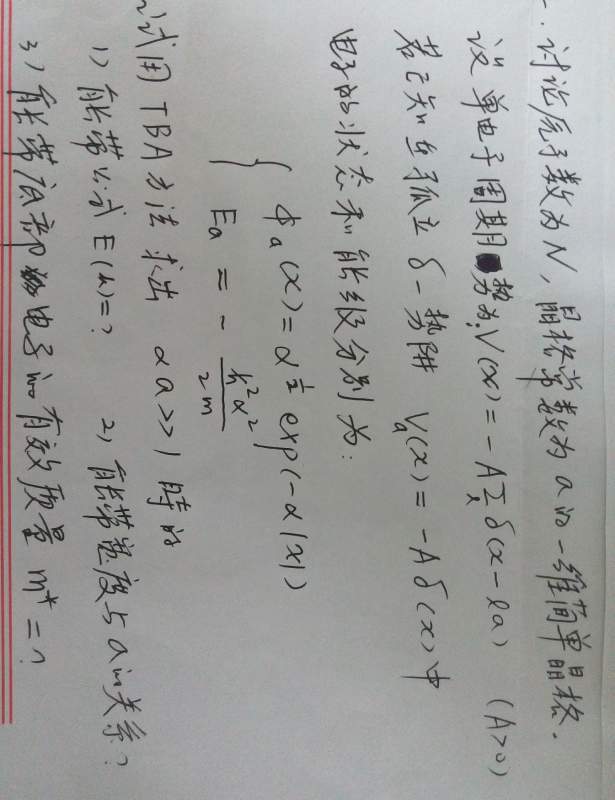 一. 讨论原子数为N, 晶格常数为a的一维简单晶格.
设单电子周期势为: V(x) = -A Σ_l δ(x-la) (A>0)
若已知在孤立 δ-势阱 V_a(x) = -A δ(x) 中
电子的状态和能级分别为:
{ φ_a(x) = α^{1/2} exp(-α|x|)
E_a = - ħ²α²/2m
试用 TBA 方法求出 αa>>1 时的
1) 能带公式 E(k)=? 2) 能带宽度与a的关系?
3) 能带底部 电子的有效质量 m* = ?